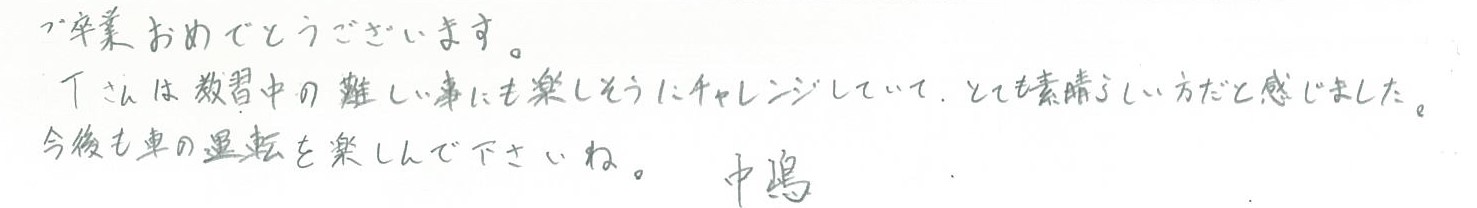 ご卒業おめでとうございます。
Tさんは教習中の難しい事にも楽しそうにチャレンジしていて、とても素晴らしい方だと感じました。
今後も車の運転を楽しんで下さいね。 中嶋